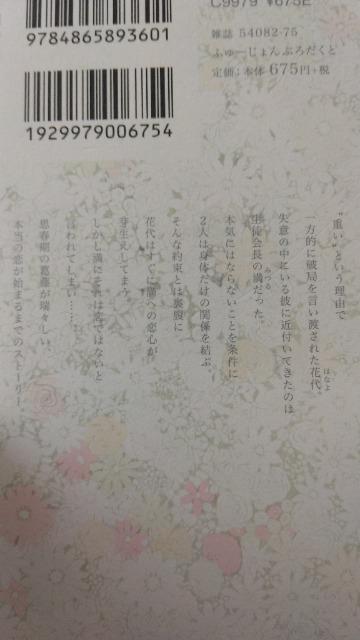 9784865893601
1929979006754
C9979 ¥675E
雑誌 54082-75
ふゅーじょんぷろだくと
定価:本体 675円+税
"重い"という理由で
一方的に破局を言い渡された花代。
はなよ
失意の中にいる彼に近付いてきたのは
生徒会長の満だった。
みつる
本気にはならないことを条件に
2人は身体だけの関係を結ぶ。
そんな約束とは裏腹に
花代はすぐに満への恋心が
芽生えてしまう。
しかし満にそれは恋ではないと
言われてしまい……。
思春期の葛藤が瑞々しい、
本当の恋が始まるまでのストーリー。